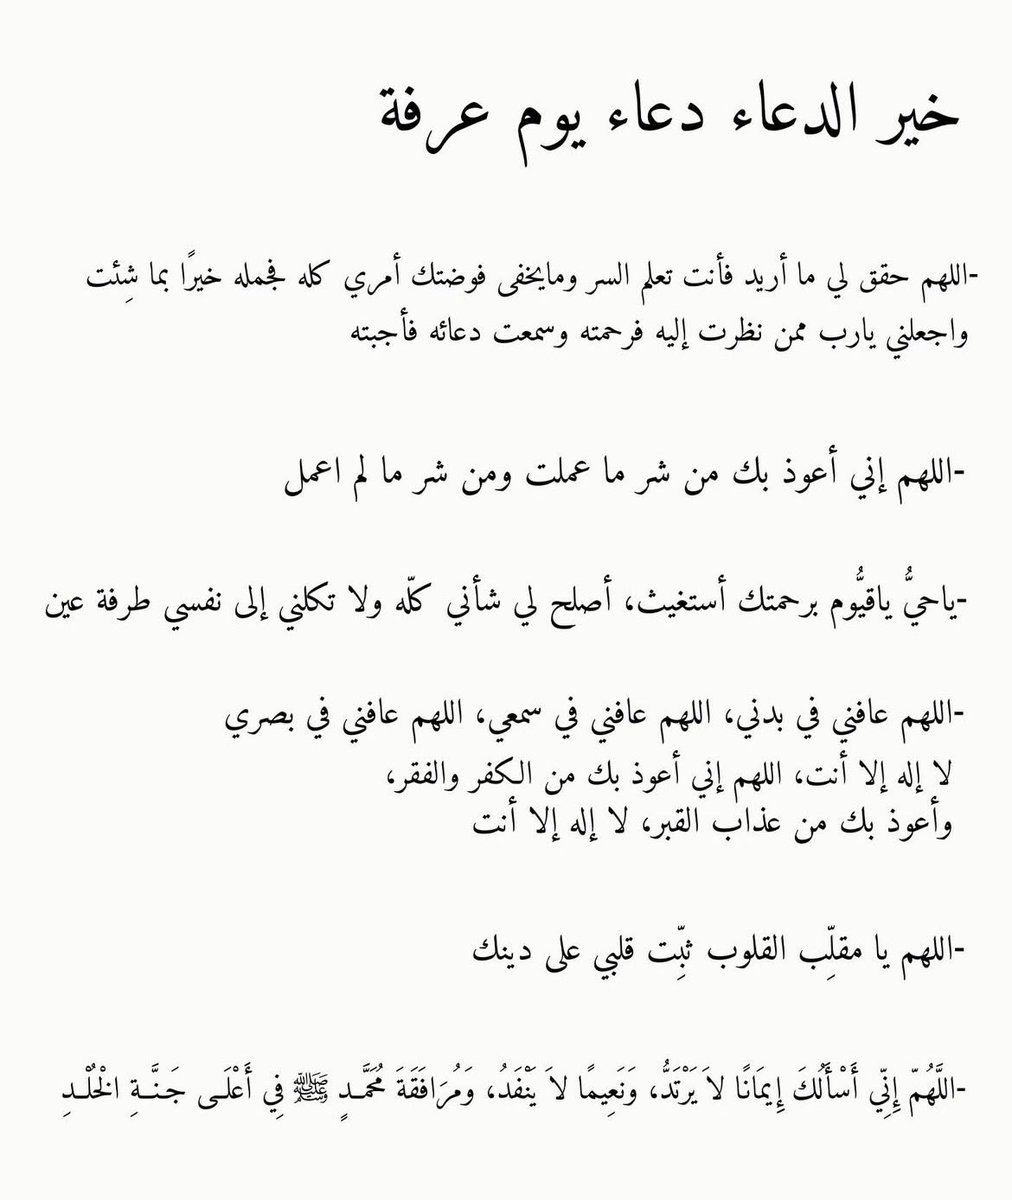 خير الدعاء دعاء يوم عرفة
-اللهم حقق لي ما أريد فأنت تعلم السر ومايخفى فوضتك أمري كله فجمله خيرًا بما شِئت
واجعلني يارب ممن نظرت إليه فرحمته وسمعت دعائه فأجبته
-اللهم إني أعوذ بك من شر ما عملت ومن شر ما لم اعمل
-ياحيُّ ياقيُّوم برحمتك أستغيث، أصلح لي شأني كلّه ولا تكلني إلى نفسي طرفة عين
-اللهم عافني في بدني، اللهم عافني في سمعي، اللهم عافني في بصري
لا إله إلا أنت، اللهم إني أعوذ بك من الكفر والفقر،
وأعوذ بك من عذاب القبر، لا إله إلا أنت
-اللهم يا مقلِّب القلوب ثبِّت قلبي على دينك
-اللَّهُمّ إِنِّي أَسْأَلُكَ إِيمَانًا لاَ يَرْتَدُّ، وَنَعِيمًا لاَ يَنْفَدُ، وَمُرَافَقَةَ مُحَمَّـدٍ ﷺ فِي أَعْلَـى جَـنَّـةِ الْخُلْـدِ